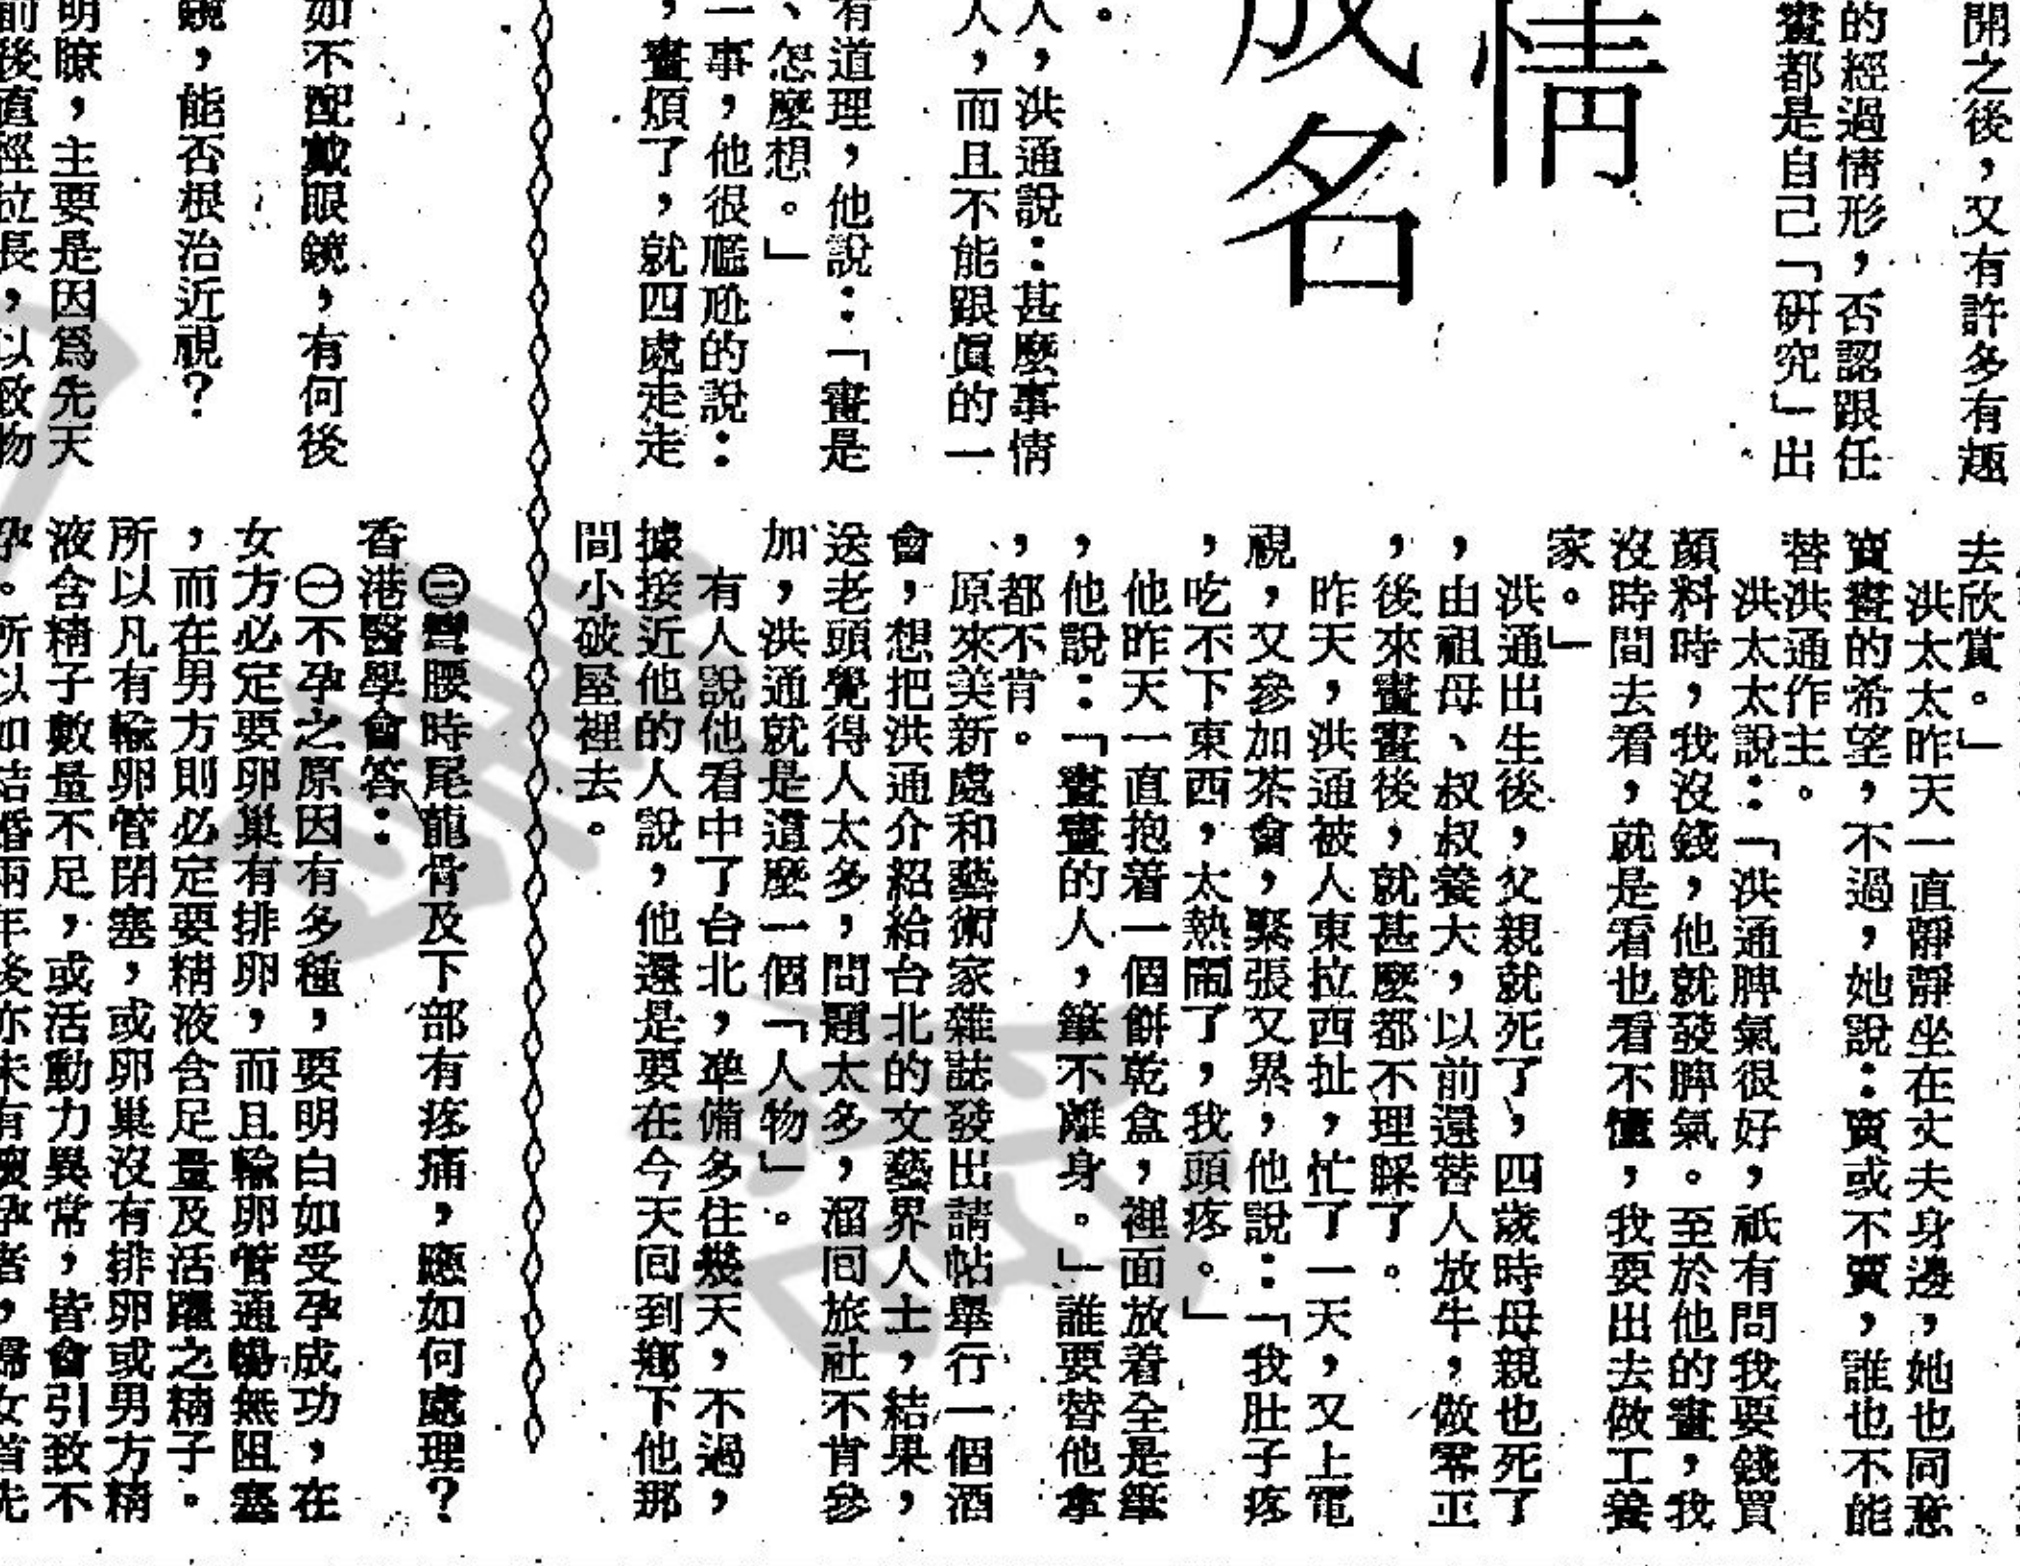 開之後，又有許多有趣
的經過情形，否認跟任
畫都是自己「研究」出
情
成名
。
人，洪通說：甚麼事情
人，而且不能跟眞的一
有道理，他說：「畫是
、怎麼想。」
一事，他很尷尬的說：
，畫煩了，就四處走走
去欣賞。」
洪太太昨天一直靜靜坐在丈夫身邊，她也同意
賣畫的希望，不過，她說：賣或不賣，誰也不能
替洪通作主。
洪太太說：「洪通脾氣很好，祇有問我要錢買
顏料時，我沒錢，他就發脾氣。至於他的畫，我
沒時間去看，就是看也看不懂，我要出去做工養
家。」
洪通出生後，父親就死了，四歲時母親也死了
，由祖母、叔叔養大，以前還替人放牛，做零工
，後來畫畫後，就甚麼都不理睬了。
昨天，洪通被人東拉西扯，忙了一天，又上電
視，又參加茶會，緊張又累，他說：「我肚子疼
，吃不下東西，太熱鬧了，我頭疼。」
他昨天一直抱着一個餅乾盒，裡面放着全是筆
，他說：「畫畫的人，筆不離身。」誰要替他拿
，都不肯。
原來美新處和藝術家雜誌發出請帖舉行一個酒
會，想把洪通介紹給台北的文藝界人士，結果，
送老頭覺得人太多，問題太多，溜回旅社不肯參
加，洪通就是這麼一個「人物」。
有人說他看中了台北，準備多住幾天，不過，
據接近他的人說，他還是要在今天回到鄉下他那
間小破屋裡去。
如不配戴眼鏡，有何後
鏡，能否根治近視？
明瞭，主要是因爲先天
前後直徑拉長，以致物
㊂彎腰時尾龍骨及下部有疼痛，應如何處理？
香港醫學會答：
㊀不孕之原因有多種，要明白如受孕成功，在
女方必定要卵巢有排卵，而且輸卵管通暢無阻塞
，而在男方則必定要精液含足量及活躍之精子。
所以凡有輸卵管閉塞，或卵巢沒有排卵或男方精
液含精子數量不足，或活動力異常，皆會引致不
孕。所以如結婚兩年後亦未有懷孕者，婦女首先